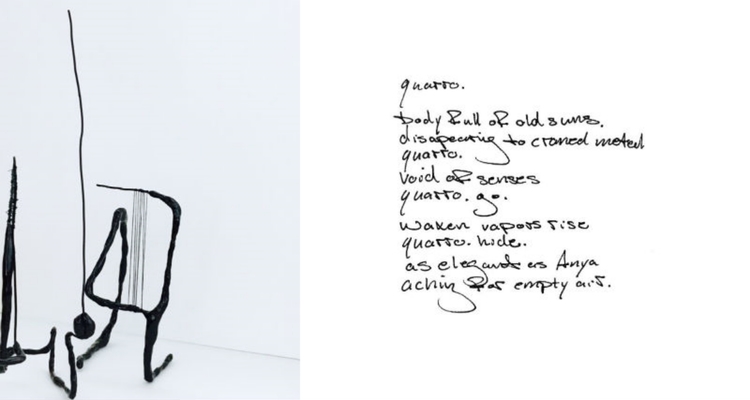 quarto.
body full of old suns.
disapearing to craned metal
quarto.
void of senses
quarto. go.
waken vapors rise
quarto. hide.
as elegants as Anya
aching for empty air.